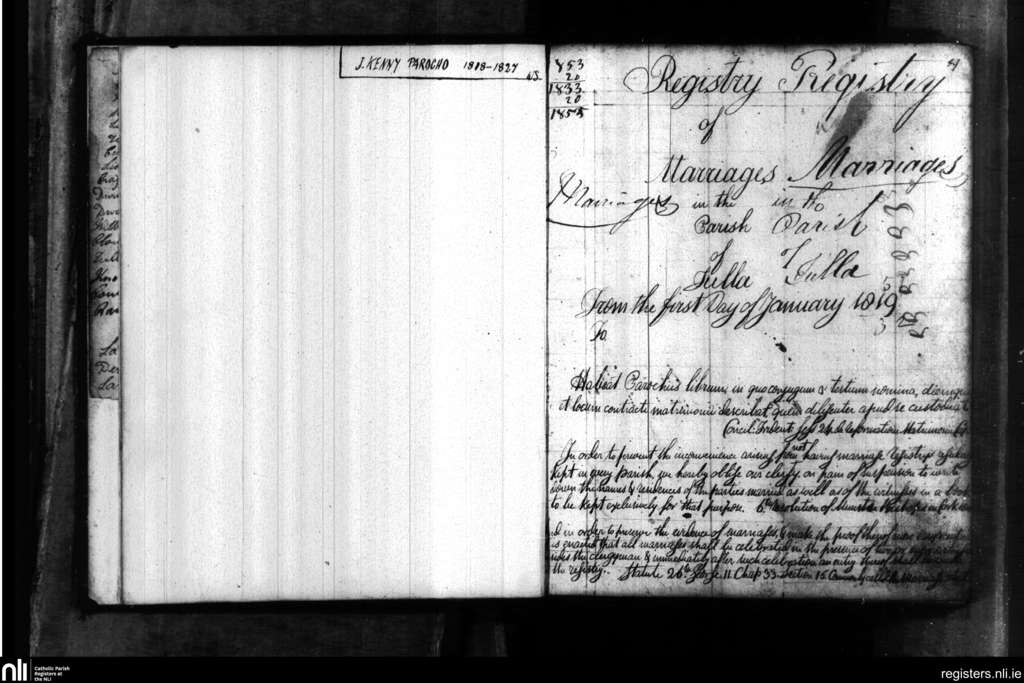 J. KENNY PAROCHO 1808-1827
NS.
853
20
1833
20
1853
Registry Registry
of
Marriages Marriages
Marriages
in the in the
Parish Parish
of of
Tulla Tulla
From the first Day of January 1819
To
Habeat Parochus librum, in quo conjugum & testium nomina, diemque
et locum contracti matrimonii describat quem diligenter apud se custodiat
Concil: Trident: Sess 24 de reformation Matrimonii
In order to prevent the inconvenience arising from not having marriage registrys
kept in every parish, we hereby oblige our clergy, on pain of suspension to write
down the names & residences of the parties married as well as of the witnesses in a book
to be kept exclusively for that purpose. 6th Resolution of Munster Bishops in Cork
in order to preserve the evidence of marriages, & make the proof thereof more
is enacted that all marriages shall be celebrated in the presence of two or more
sides the clergyman & immediately after such celebration an entry thereof shall
the registry. Statute 26th George 11 Chap 33 Section 15 Commonly called the Marriage
nli
Catholic Parish
Registers at
the NLI
registers.nli.ie